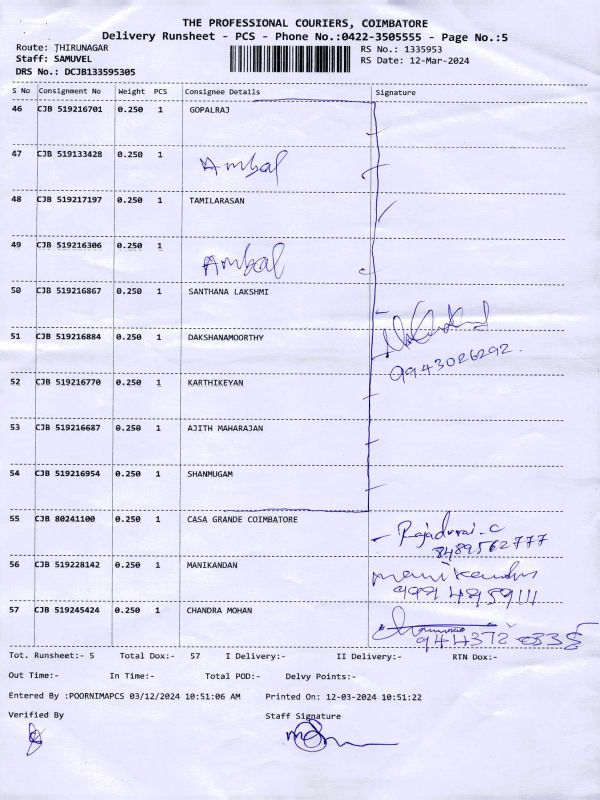 THE PROFESSIONAL COURIERS, COIMBATORE
Delivery Runsheet - PCS - Phone No.:0422-3505555 - Page No.:5
Route: THIRUNAGAR RS No.: 1335953
Staff: SAMUVEL RS Date: 12-Mar-2024
DRS No.: DCJB133595305
S No Consignment No Weight PCS Consignee Details Signature
46 CJB 519216701 0.250 1 GOPALRAJ
47 CJB 519133428 0.250 1 Ambal
48 CJB 519217197 0.250 1 TAMILARASAN
49 CJB 519216306 0.250 1 Ambal
50 CJB 519216867 0.250 1 SANTHANA LAKSHMI
51 CJB 519216884 0.250 1 DAKSHANAMOORTHY
9943026292.
52 CJB 519216770 0.250 1 KARTHIKEYAN
53 CJB 519216687 0.250 1 AJITH MAHARAJAN
54 CJB 519216954 0.250 1 SHANMUGAM
55 CJB 80241100 0.250 1 CASA GRANDE COIMBATORE - Rajadurai.c
8489562777
56 CJB 519228142 0.250 1 MANIKANDAN manikandan
57 CJB 519245424 0.250 1 CHANDRA MOHAN
Tot. Runsheet:- 5 Total Dox:- 57 I Delivery:- II Delivery:- RTN Dox:-
Out Time:- In Time:- Total POD:- Delvy Points:-
Entered By :POORNIMAPCS 03/12/2024 10:51:06 AM Printed On: 12-03-2024 10:51:22
Verified By Staff Signature